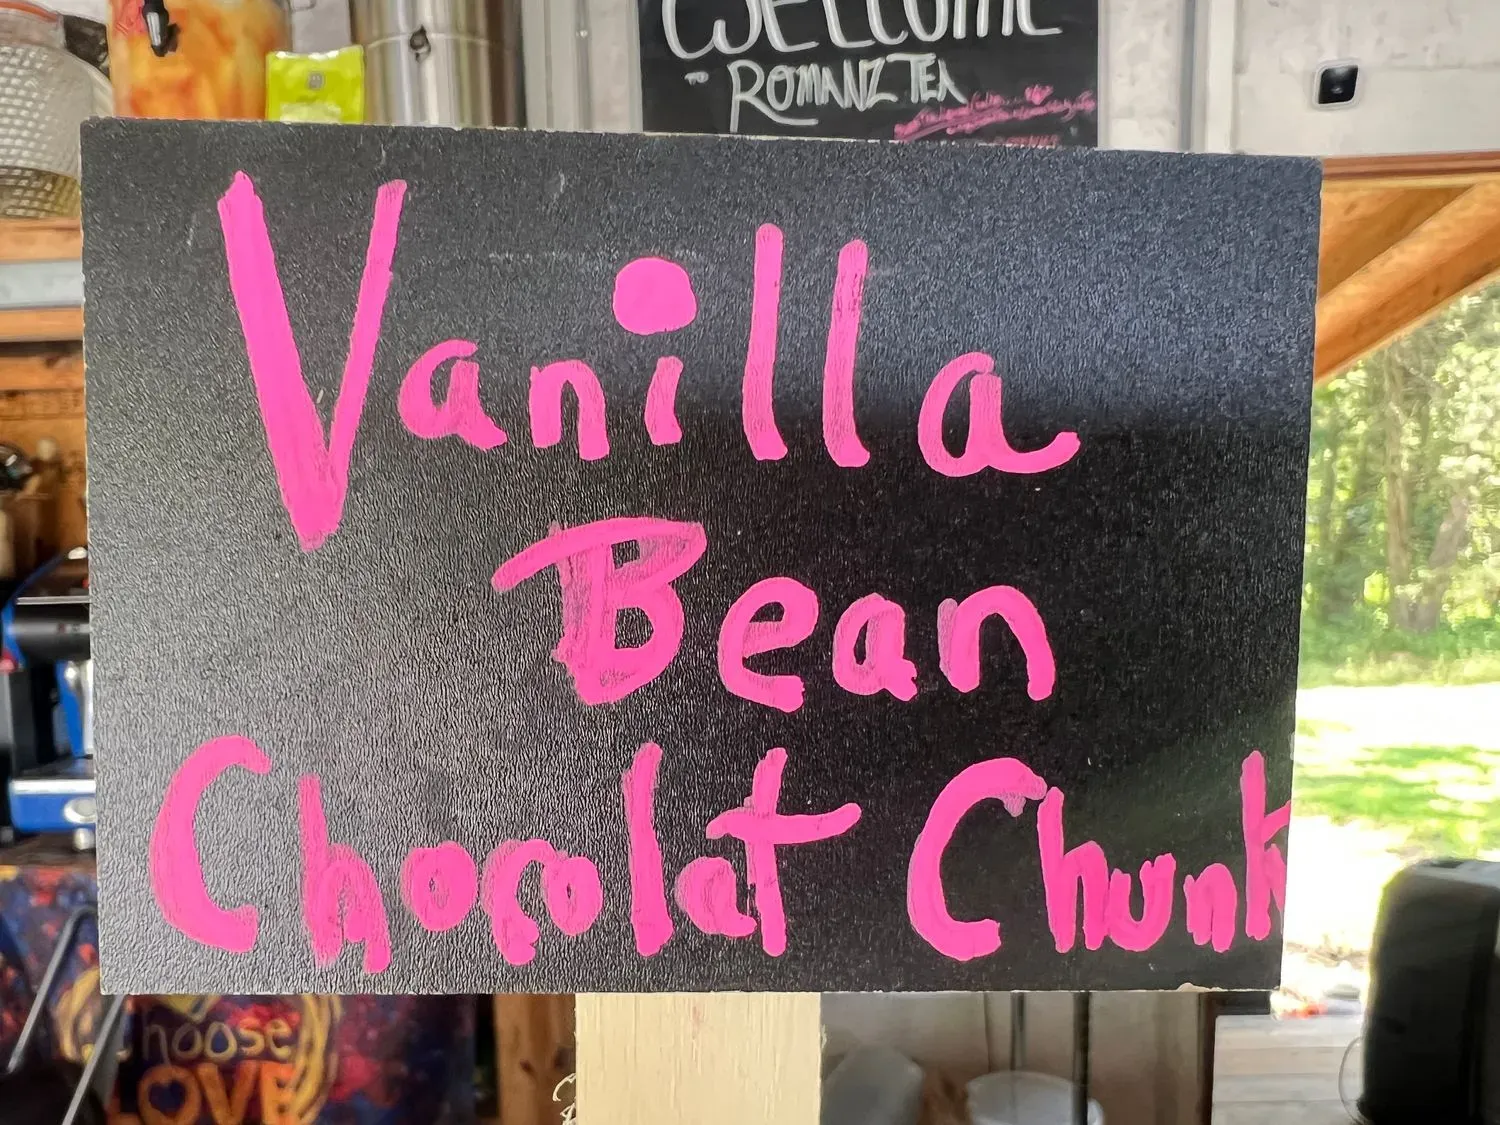 WELCOME
TO ROMANZ TEA
Vanilla
Bean
Chocolat Chunk
Choose
LOVE